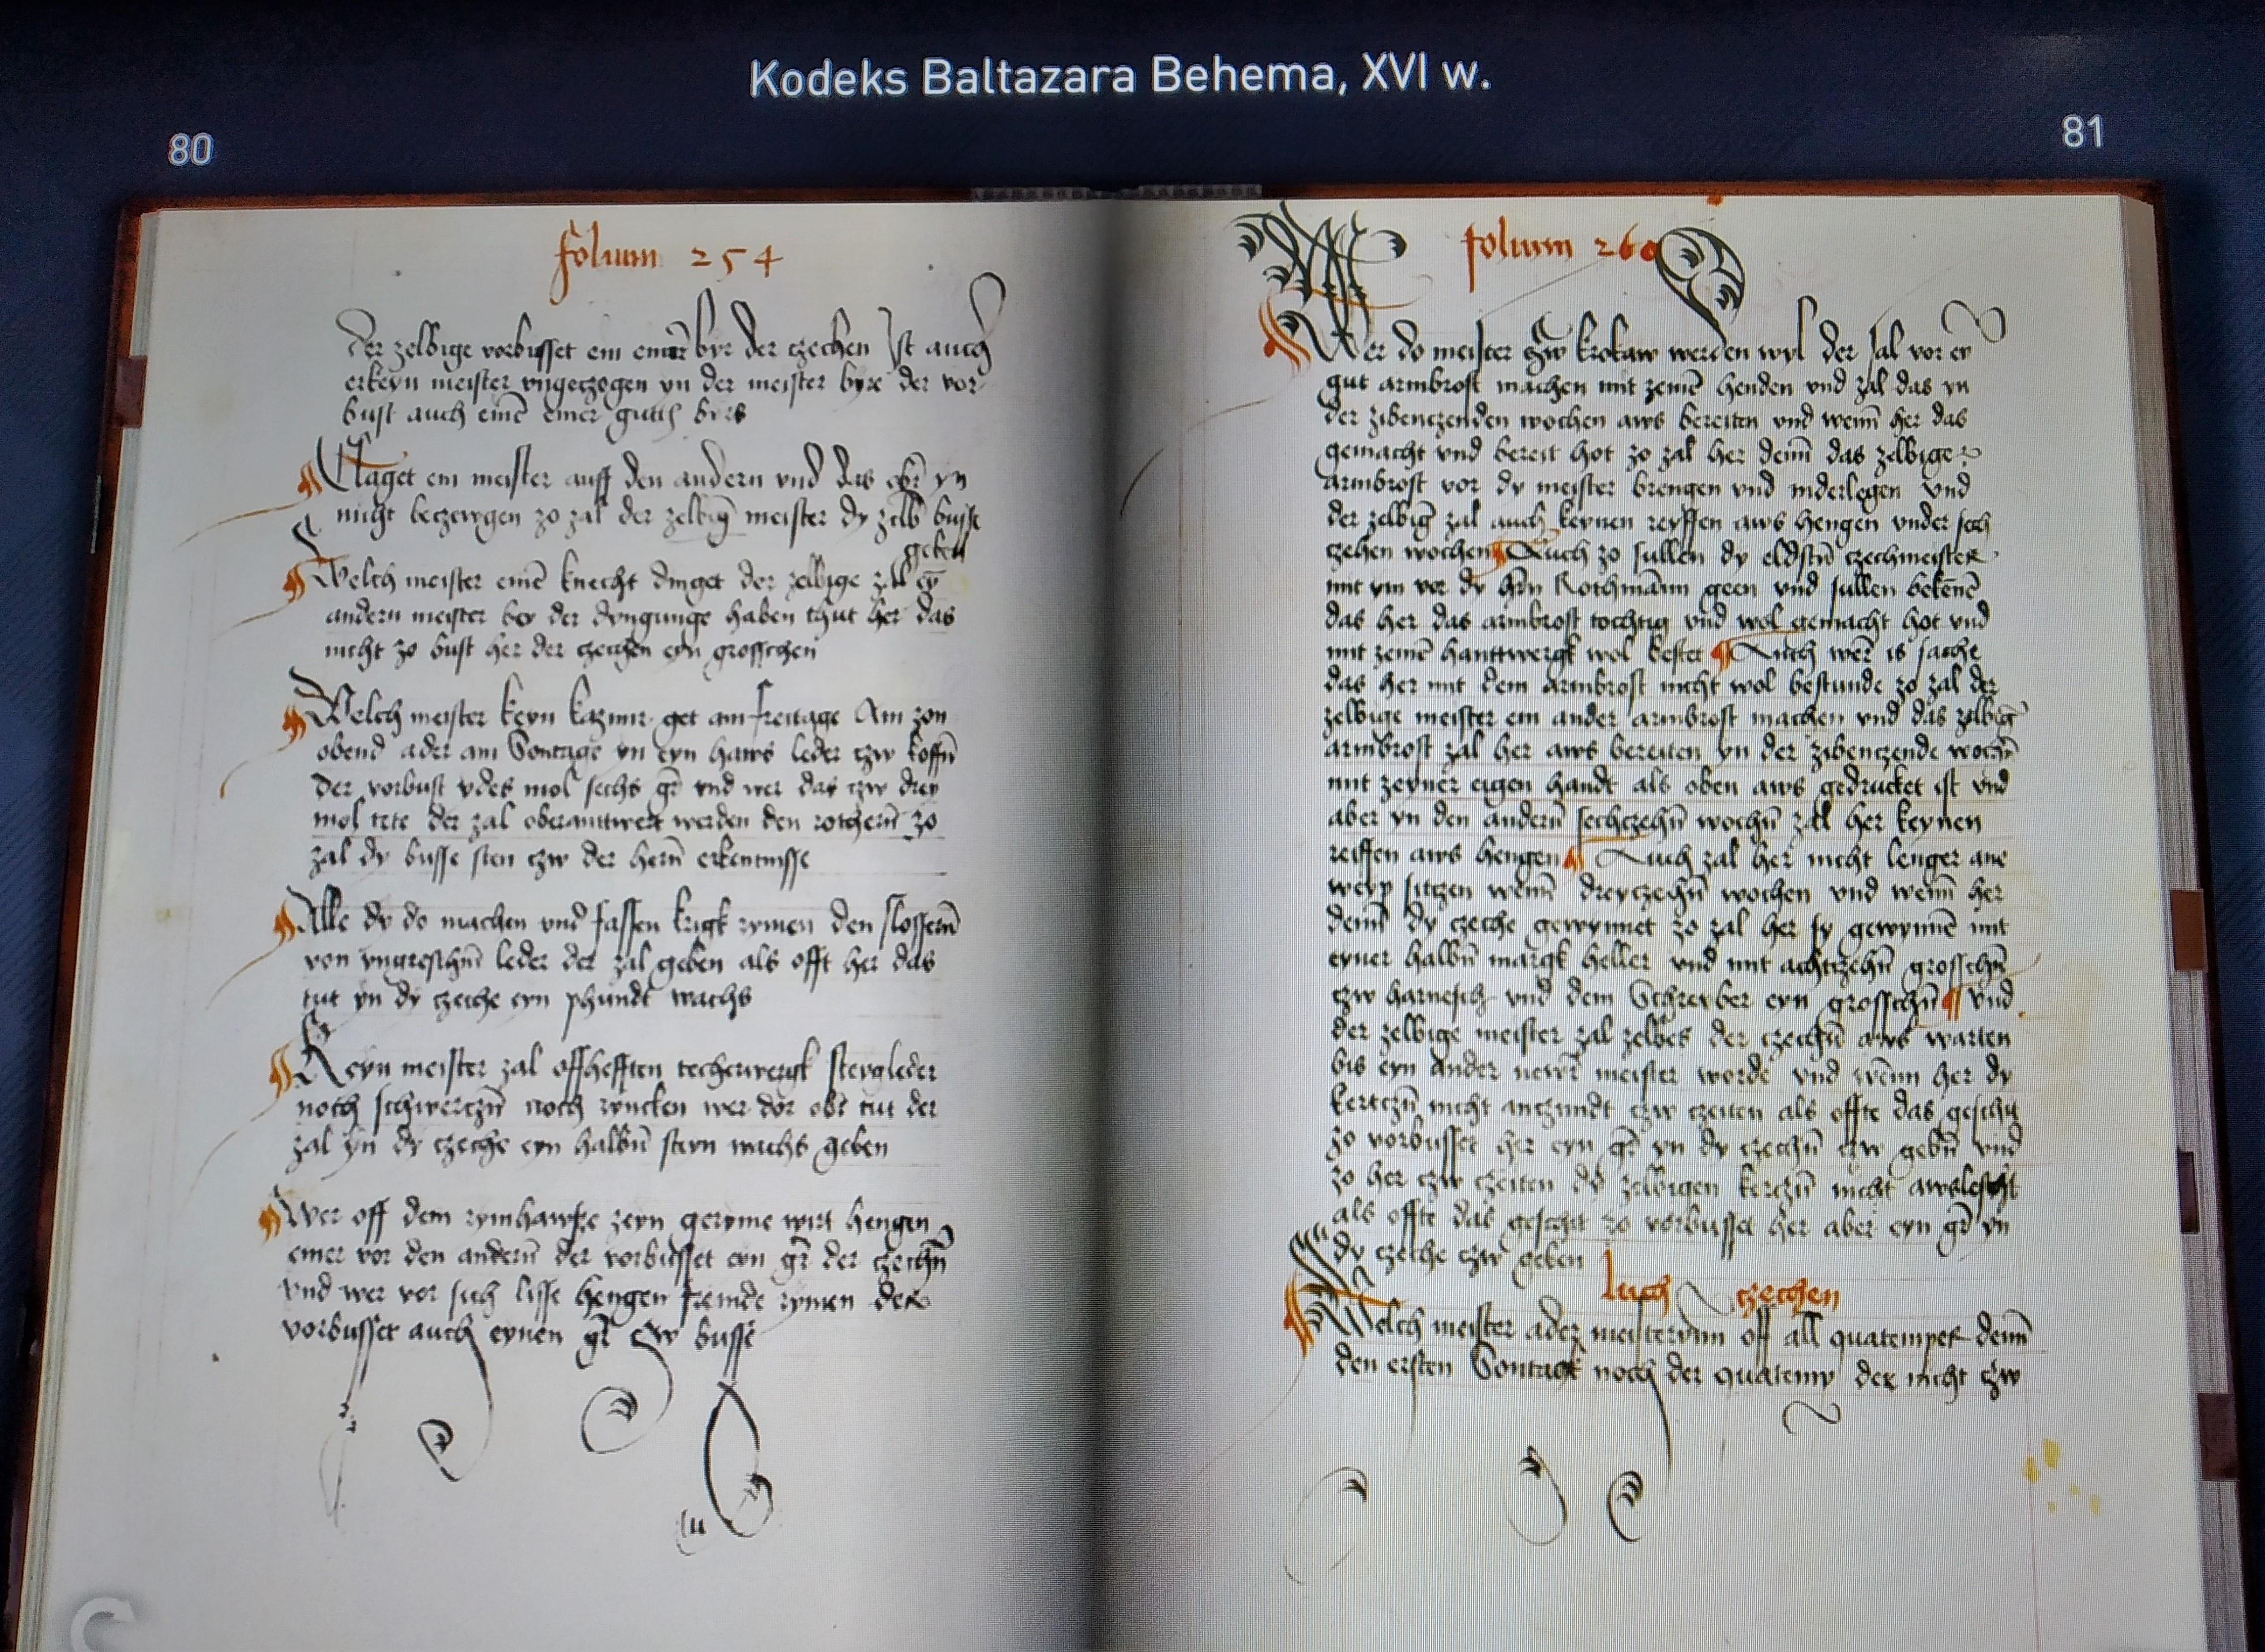 Kodeks Baltazara Behema, XVI w.
80
81
folium 254
Der zelbige vorbusset ein emer byr der czechen Ist auch
erkeyn meister vngeczogen yn der meister byre der vor
bust auch einē emer gutß birs
Claget ein meister auff den andern vnd das obir yn
nicht beczewgen zo zal der zelbig meister dy zelb busse
geben
Welch meister einē knecht dinget der zelbige zal eyn
andern meister bey der dyngunge haben thut her das
nicht zo bust her der czechen eyn grosschen
Welch meister keyn kazmir get am freitage Am zon
obend ader am Sontage yn eyn haws leder czw koffn̄
Der vorbust ydes mol sechs gr̄ vnd wer das czw drey
mol tete der zal oberantwert werden den rothern̄ zo
zal dy busse sten czw der hern̄ erkentnisse
Alle dy do machen vnd fassen krigk rymen den slossern̄
von vngreschm̄ leder der zal geben als offt her das
tut yn dy czeche eyn phundt wachs
Keyn meister zal offhefften techerwergk steygleder
noch schwerczn̄ noch ryncken wer dor obir tut der
zal yn dy czeche eyn halbn̄ steyn wachs geben
Wer off dem rymhawße zeyn geryme wirt hengen
einer vor den andern̄ der vorbusset eyn gr̄ der czechn̄
vnd wer vor sich lisse hengen fremde rymen der
vorbusset auch eynen gr̄ czw busse
folium 260
Wer do meister czw krokaw werden wyl der sal vor eyn
gut armbrost machen mit zeinē henden vnd zal das yn
der zibenczenden wochen aws bereiten vnd wenn̄ her das
gemacht vnd bereit hot zo zal her denn̄ das zelbige
armbrost vor dy meister brengen vnd niderlegen vnd
der zelbig zal auch keynen reyffen aws hengen vnder sech
czehen wochen Auch zo sullen dy eldstn̄ czechmeister
mit ym vor dy hr̄n Rothmānn geen vnd sullen bekēnē
das her das armbrost tochtig vnd wol gemacht hot vnd
mit zeinē hanttwergk wol bestet Auch wer is sache
das her mit dem armbrost nicht wol bestunde zo zal der
zelbige meister ein ander armbrost machen vnd das zelbig
armbrost zal her aws bereiten yn der zibenczende wochn̄
mit zeyner eigen handt als oben aws gedrucket ist vnd
aber yn den andern̄ sechczehn̄ wochn̄ zal her keynen
reiffen aws hengen Auch zal her nicht lenger ane
weyp sitczen wenn̄ dreyczehn̄ wochen vnd wenn̄ her
denn̄ dy czeche gewynnet zo zal her sy gewynnē mit
eyner halbn̄ margk heller vnd mit achtzehn̄ grosschn̄
czw harnesch vnd dem Schreyber eyn grosschn̄ vnd
der zelbige meister zal zelbes der czechn̄ aws warten
bis eyn ander newr meister worde vnd wēnn her dy
kertczn̄ nicht anczundt czw czeiten als offte das geschit
zo vorbusset her eyn gr̄ yn dy czechn̄ czw gebn̄ vnd
zo her czw czeiten dy zelbigen kerczn̄ nicht awslescht
als offte das geschit zo vorbusset her aber eyn gr̄ yn
dy czeche czw geben
luch czechen
Welch meister ader meisterynn off all quatemper denn̄
den ersten Sontagk noch der quatemp der nicht czw